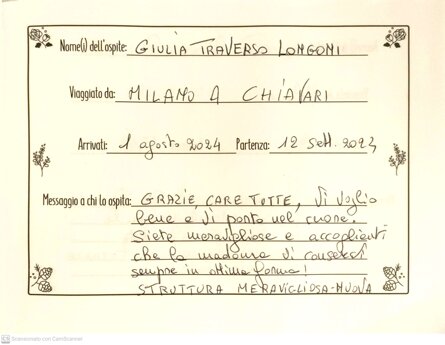 Nome(i) dell'ospite: GIULIA TRAVERSO LONGONI
Viaggiato da: MILANO A CHIAVARI
Arrivati: 1 agosto 2024 Partenza: 12 Sett. 2024
Messaggio a chi lo ospita: GRAZIE, CARE TUTTE, Vi voglio
bene e vi porto nel cuore.
Siete meravigliose e accoglienti
che la madonna vi conservi
sempre in ottima forma!
STRUTTURA MERAVIGLIOSA-NUOVA
CS Scansionato con CamScanner